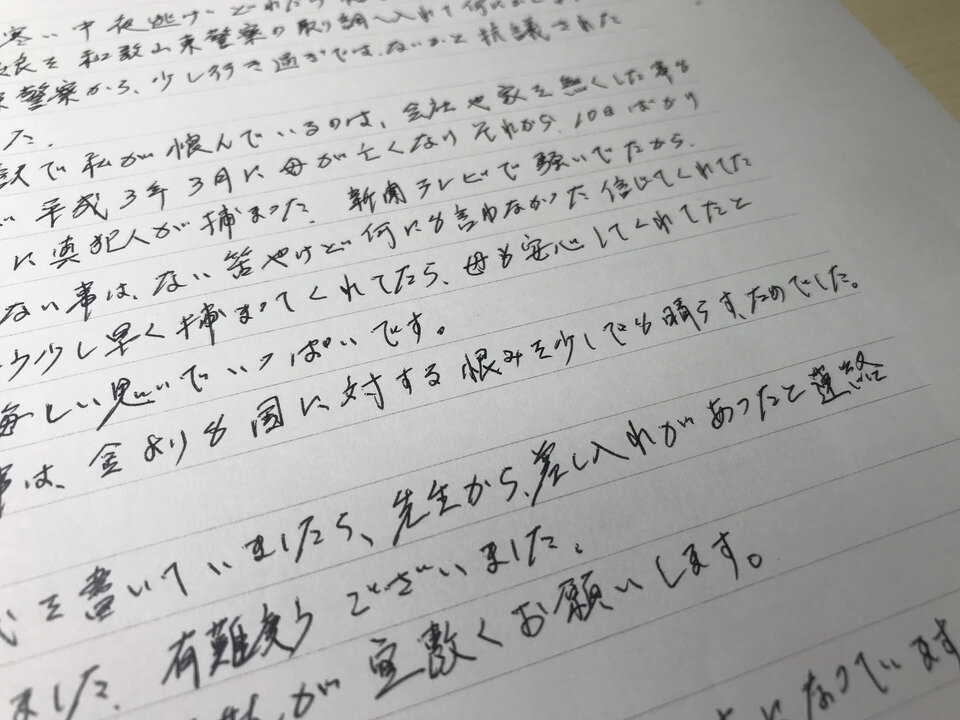 寒い中夜逃げ
を和歌山東警察の取り調べ入れて何
警察から、少し行き過ぎでは、ないかと抗議された
た。
訳で私が恨んでいるのは、会社や家を無くした事も
平成3年3月に母が亡くなりそれから、10日ばかり
に真犯人が捕まった。新聞テレビで騒いでたから、
ない事は、ない筈やけど何にも言わなかった信じてくれてた
う少し早く捕まってくれてたら、母も安心してくれてたと
悔しい思いでいっぱいです。
事は、金よりも国に対する恨みを少しでも晴らすためでした。
を書いていましたら、先生から、差し入れがあったと連絡
ました。有難うございました。
が宜敷くお願いします。
になっています